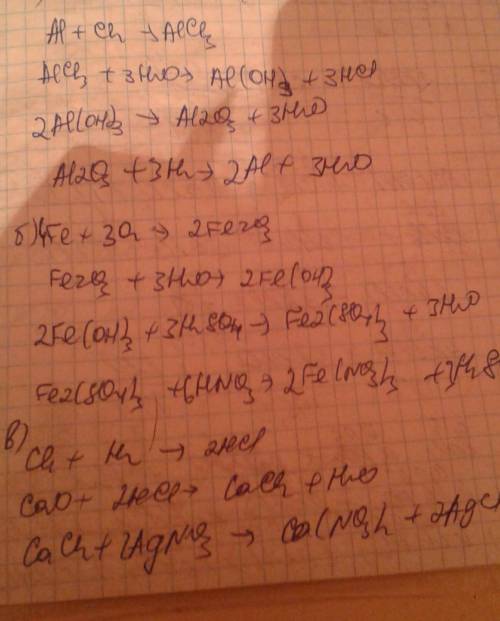 Al + Cl2 → AlCl3
AlCl3 + 3H2O → Al(OH)3 + 3HCl
2Al(OH)3 → Al2O3 + 3H2O
Al2O3 + 3H2 → 2Al + 3H2O
б) 4Fe + 3O2 → 2Fe2O3
Fe2O3 + 3H2O → 2Fe(OH)3
2Fe(OH)3 + 3H2SO4 → Fe2(SO4)3 + 3H2O
Fe2(SO4)3 + 6HNO3 → 2Fe(NO3)3 +
в)
Cl2 + H2 → 2HCl
CaO + 2HCl → CaCl2 + H2O
CaCl2 + 2AgNO3 → Ca(NO3)2 + 2AgCl